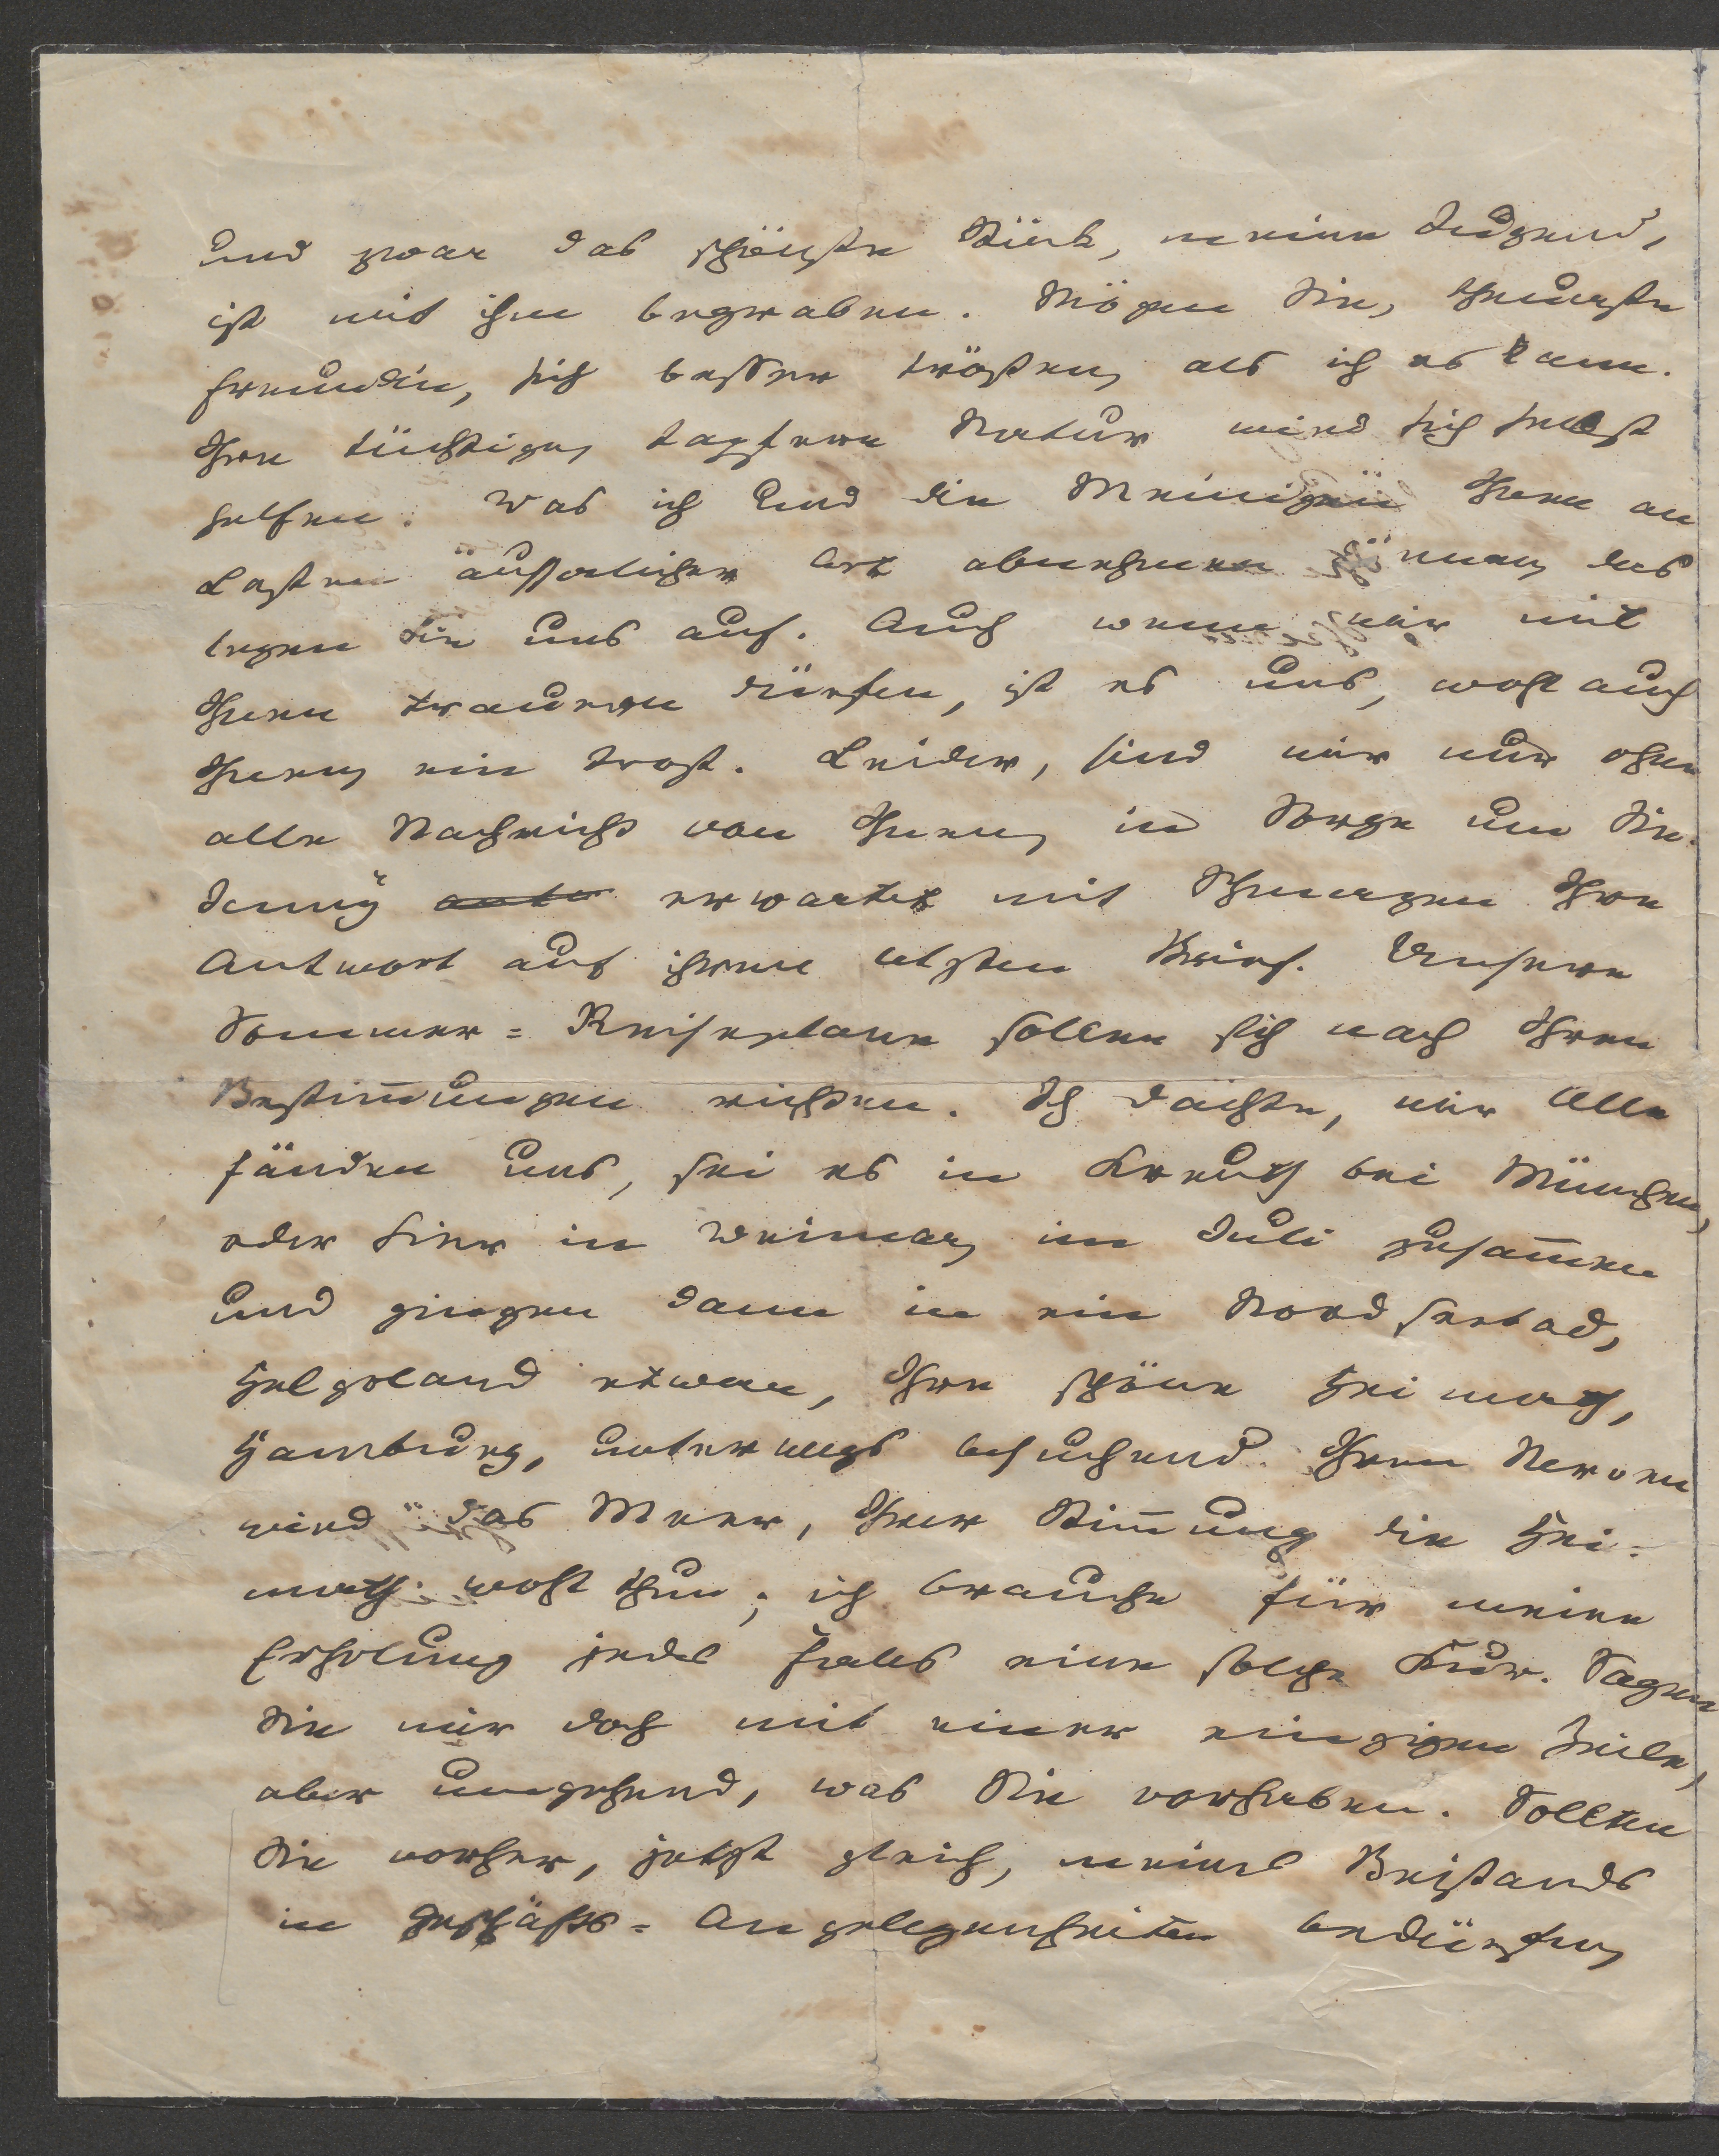 und zwar das schönste Stück, meine Judgend,
ist mit ihm begraben. Mögen Sie, theuerste
Freundin, sich besser trösten, als ich es kann.
Ihre tüchtige, tapfere Natur wird sich selbst
helfen. Was ich und die Meinigen Ihnen an
Lasten äußerlicher Art abnehmen können, das
legen Sie uns auf. Auch wenn wir mit
Ihnen trauern dürfen, ist es uns, wohl auch
Ihnen, ein Trost. Leider, sind wir nur ohne
alle Nachricht von Ihnen, in Sorge um Sie.
Jenny erwartet mit Schmerzen Ihre
Antwort auf ihren letzten Brief. Unsere
Sommer=Reiseplane sollen sich nach Ihren
Bestim̅ungen richten. Ich dächte, wir Alle
fänden uns, sei es in Kreuth bei München,
oder hier in Weimar, im Juli zusam̅en
und gingen dann in ein Nordseebad,
Helgoland etwa, Ihre schöne Heimath,
Hamburg, unterwegs besuchend. Ihren Nerven
wird das Meer, Ihrer Stim̅ung die Hei-
math wohl thun; ich brauche für meine
Erholung jedes Falles eine solche Kur. Sagen
Sie mir doch mit einer einzigen Zeile,
aber umgehend, was Sie vorhaben. Sollten
Sie vorher, jetzt gleich, meines Beistands
in Geschäfts=Angelegenheiten bedürfen,